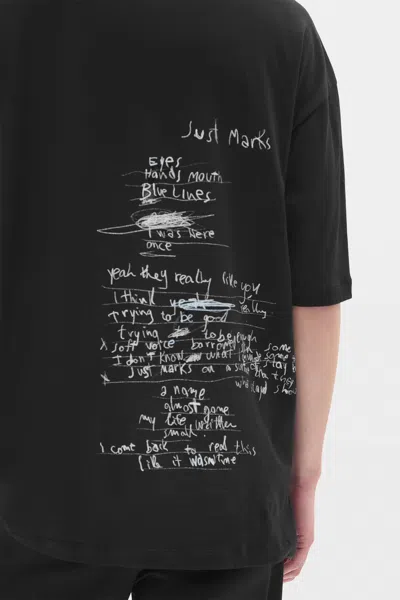 Just Marks
Eyes
Hands Mouth
Blue Lines
I was here
once
yeah they really like you
I think really
trying to be good
trying to be
x soft voice some
I don't know what
x just marks on a
a name
almost gone
my life written
small.
I come back to read this
like it wasn't me